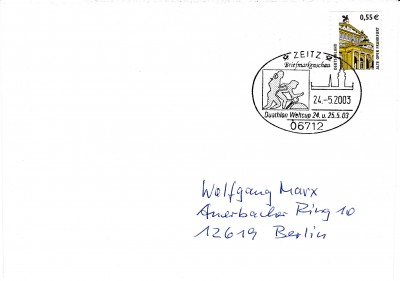 0,55 €
DEUTSCHLAND
ALTE OPER FRANKFURT
ZEITZ
Briefmarkenschau
24.-5.2003
Duathlon Weltcup 24. u. 25.5.03
06712
Wolfgang Marx
Auerbacher Ring 10
12619 Berlin